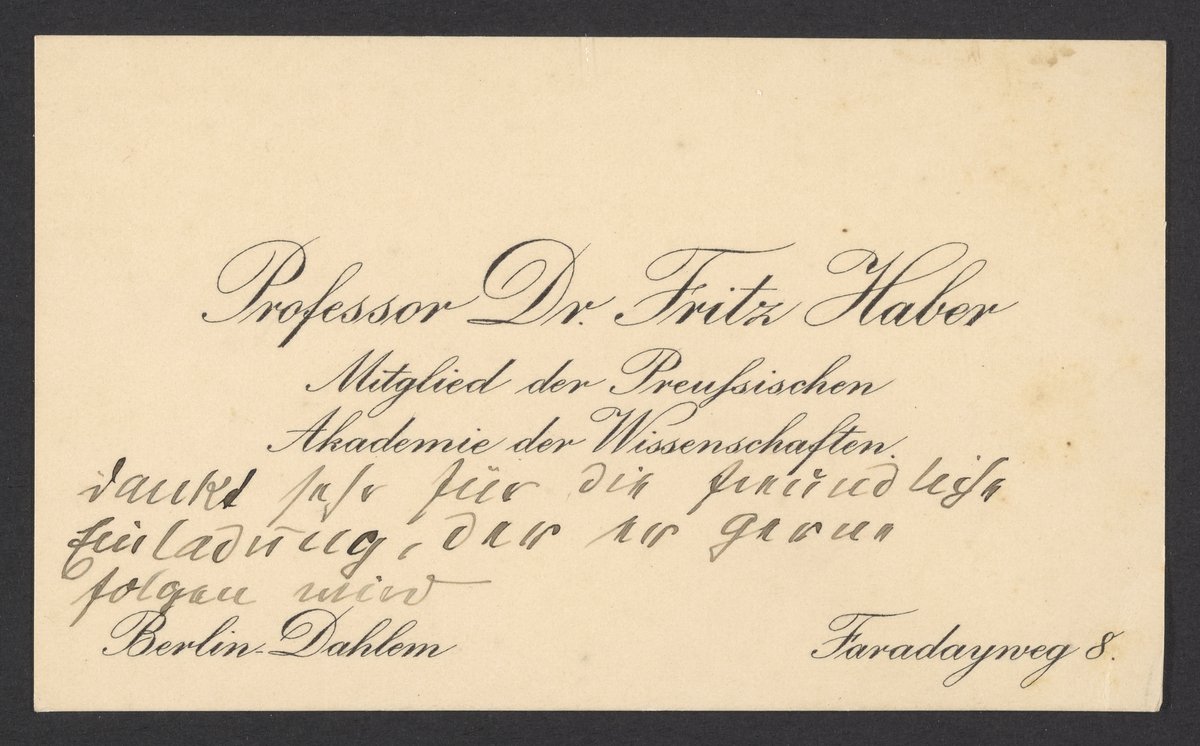 Professor Dr. Fritz Haber
Mitglied der Preußischen
Akademie der Wissenschaften.
dankt sehr für die freundliche
Einladung, der er gerne
folgen wird
Berlin-Dahlem
Faradayweg 8.